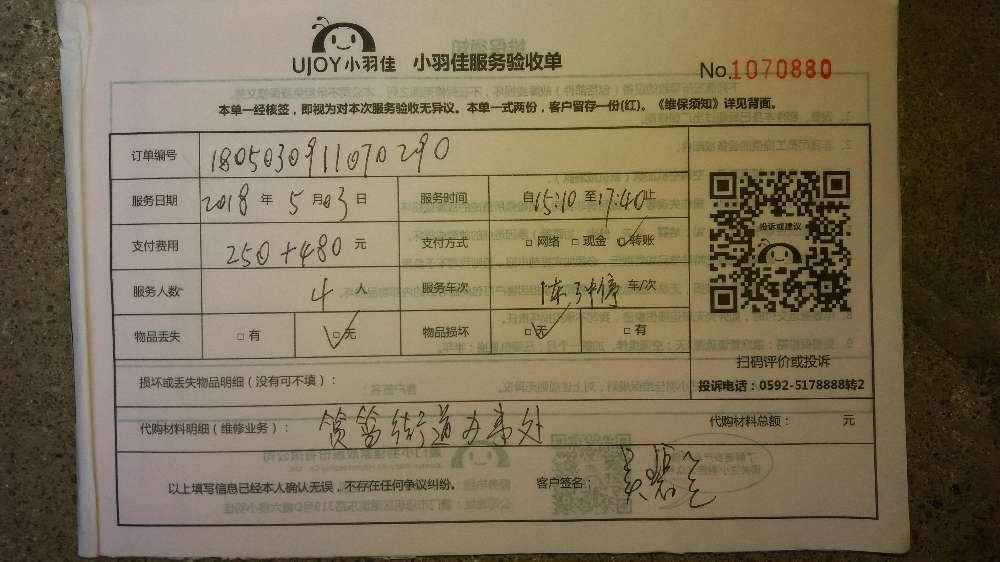 UJOY小羽佳 小羽佳服务验收单
No.1070880
本单一经核签，即视为对本次服务验收无异议。本单一式两份，客户留存一份(红)。《维保须知》详见背面。
订单编号 1805030911070290
服务日期 2018 年 5 月 03 日 服务时间 自15:10 至17:40止
支付费用 250+480 元 支付方式 □网络 □现金 □转账
投诉或建议
服务人数 4 人 服务车次 1 车/次
物品丢失 □有 □无 物品损坏 □无 □有
扫码评价或投诉
损坏或丢失物品明细（没有可不填）：
投诉电话：0592-5178888转2
代购材料明细（维修业务）： 筼筜街道办事处 代购材料总额： 元
以上填写信息已经本人确认无误，不存在任何争议纠纷。 客户签名：